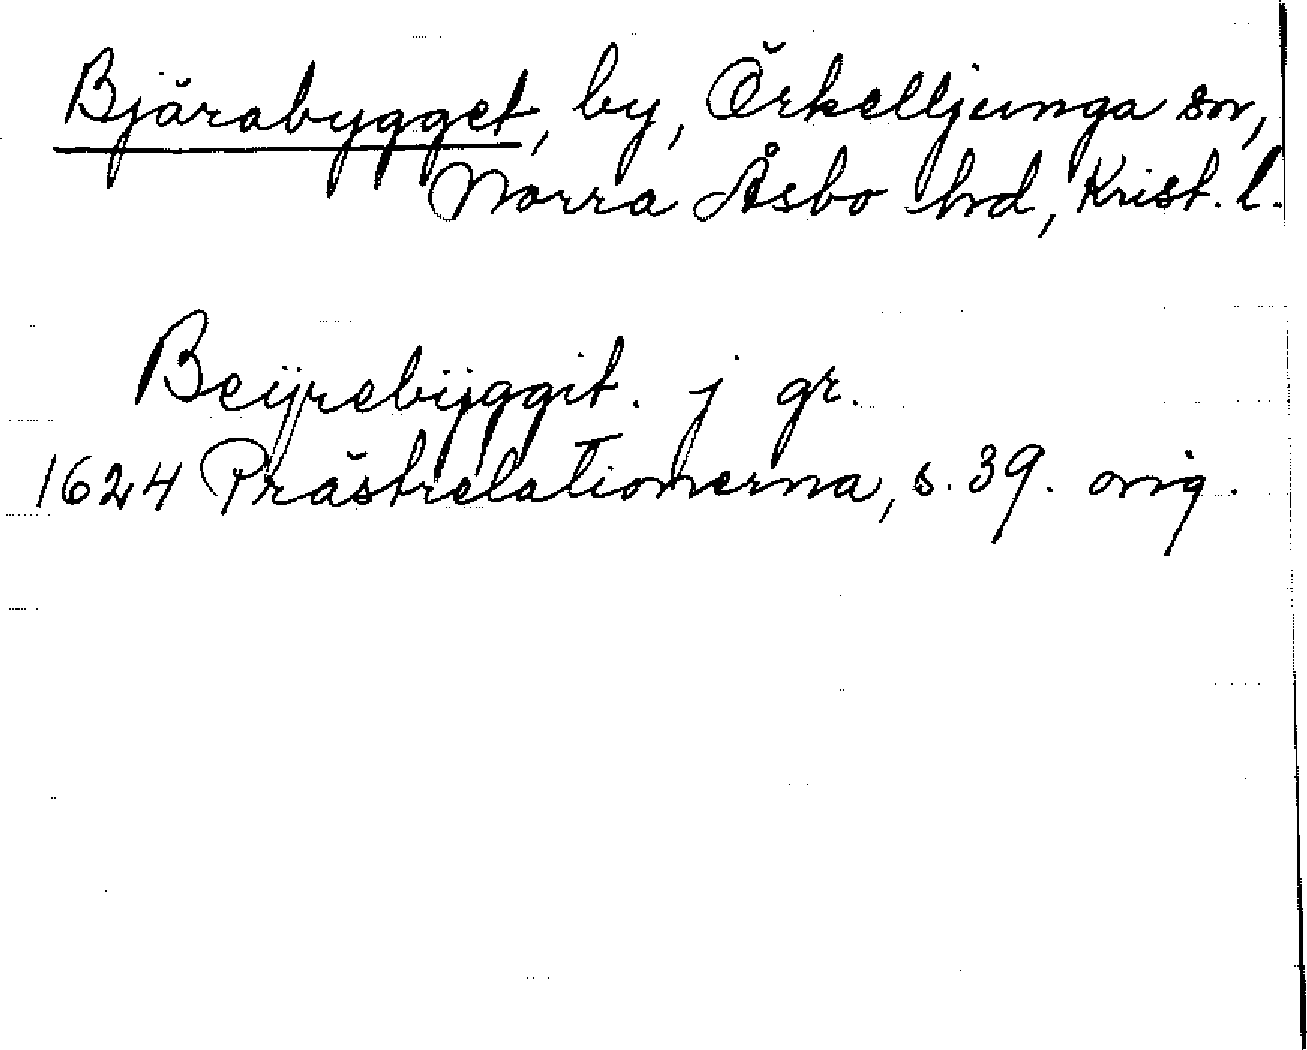 Bjärabygget, by, Örkelljunga sn,
Norra Åsbo hd, Krist. l.
Beÿrebÿggit. j gr.
1624 Prästrelationerna, s. 39. orig.